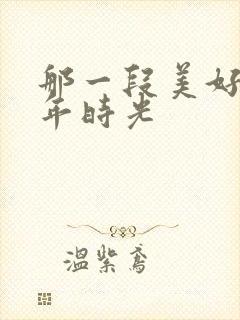 那一段美好
年时光
温紫鸢